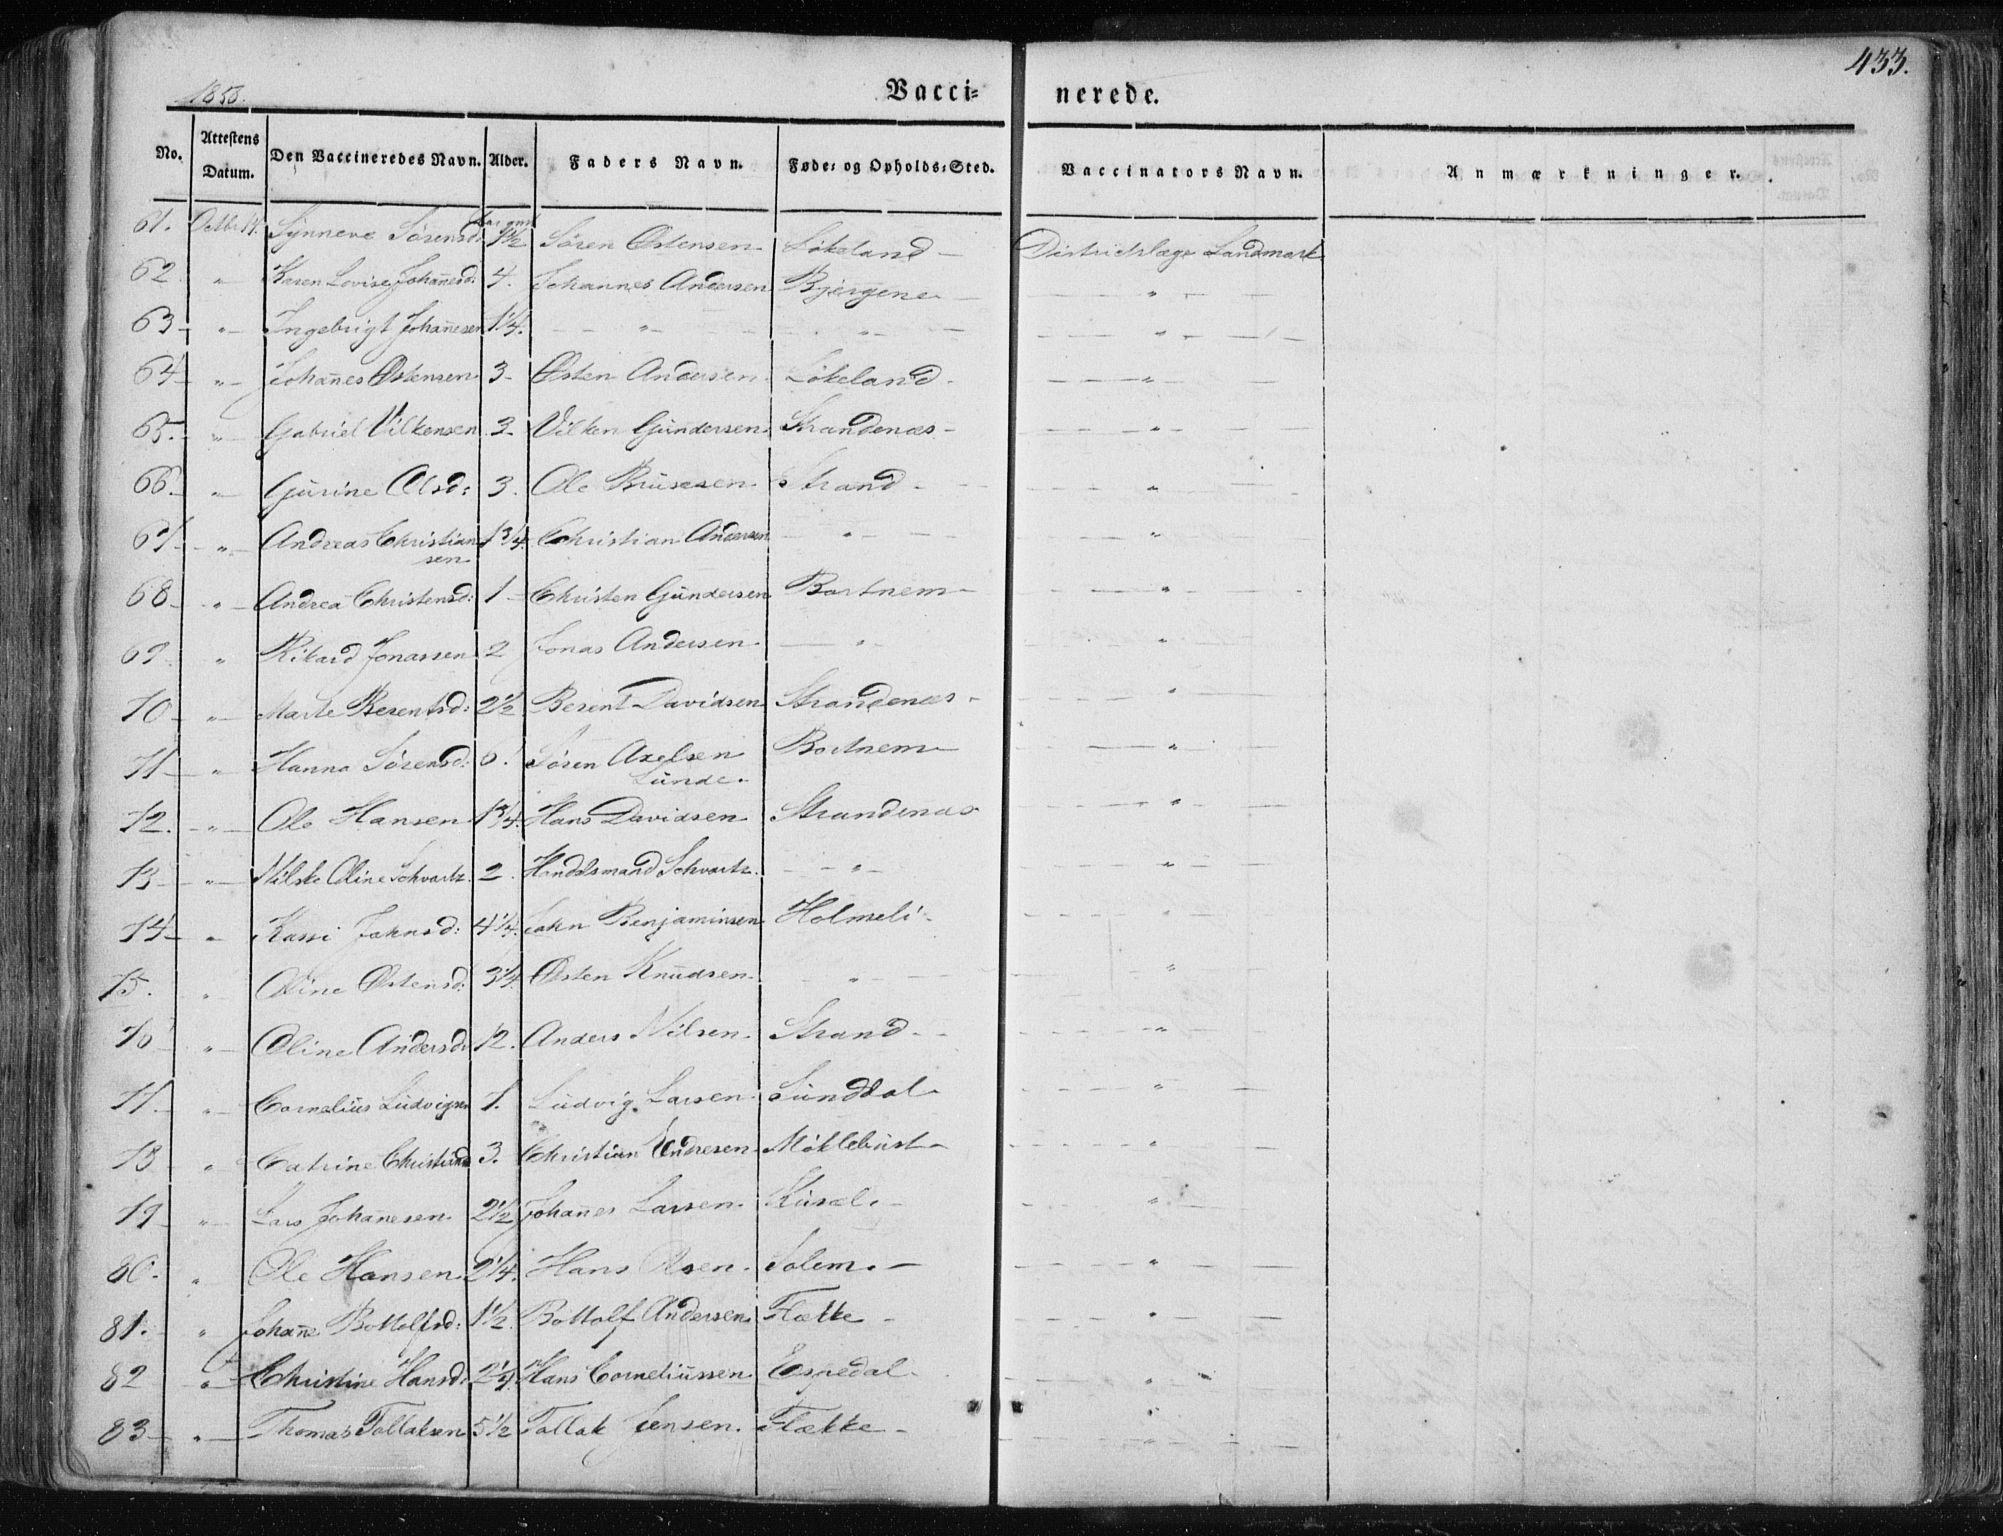 433.
1853.
Vacci- nerede.
No. Attestens Datum. Den Vaccineredes Navn. Alder. Faders Navn. Føde- og Opholds-Sted. Vaccinators Navn. Anmærkninger.
61. Octbr 14. Synneve Sørensd: 1 1/2 Søren Østensen Løkeland - Districtslæge Landmark
62 " Karen Lovise Johannesd: 4. Johannes Andersen Bjergene - "
63 - " - Ingebrigt Joha̅nesen 1 1/4. - " - - " - - " -
64 - " - Joha̅nes Østensen 3 - Østen Andersen. Løkeland - - " -
65. - " - Gabriel Vilkensen 3 - Vilken Gundersen. Strandenæs - - " -
66 - " - Gurine Olsd: 3. Ole Brusesen. Strand - - " -
67 - " - Andreas Christian 1 3/4. Christian Andersen - " - - " -
sen
68 - " - Andrea Christensd: 1 - Christen Gundersen Bortnem - - " -
69 " Rikard Jonassen 2 Jonas Andersen. - " - "
70 - " - Marte Berentsd: 2 1/2 Berent Davidsen Strandenæs - - " -
71 - " - Hanna Sørensd: 6. Søren Axelsen Bortnem - - " -
Lunde.
72. - " - Ole Hansen 1 3/4. Hans Davidsen Strandenæs - " -
73 - " - Nilske Oline Schvartz. 2. Handelsmand Schvartz. - " - - " -
74 - " Kari Johnsd: 4 1/4. John Benjaminsen Holmeli - - " -
75. " Oline Østensd: 3/4. Østen Knudsen. - " - - " -
76 - " - Oline Andersd: 12. Anders Nilsen. Strand - - " -
77. - " - Cornelius Ludvigsen 1. Ludvig Larsen. Sunddal - " -
78 " Catrine Christiansd 3. Christian Andresen. Møklebust - - " -
79 - " - Lars Joha̅nesen. 2 1/2 Joha̅nes Larsen. - " -
80. " Ole Hansen. 2 1/4. Hans Olsen. Solem. - - " -
81. " Joha̅ne Bottolfsd: 1 1/2. Bottolf Andersen. Flække - - " -
82 " Christine Hansd: Hans Corneliussen. Espedal. - " -
83 - " - Thomas Tollaksen 5 1/2 Tollak Jensen. Flække - - " -